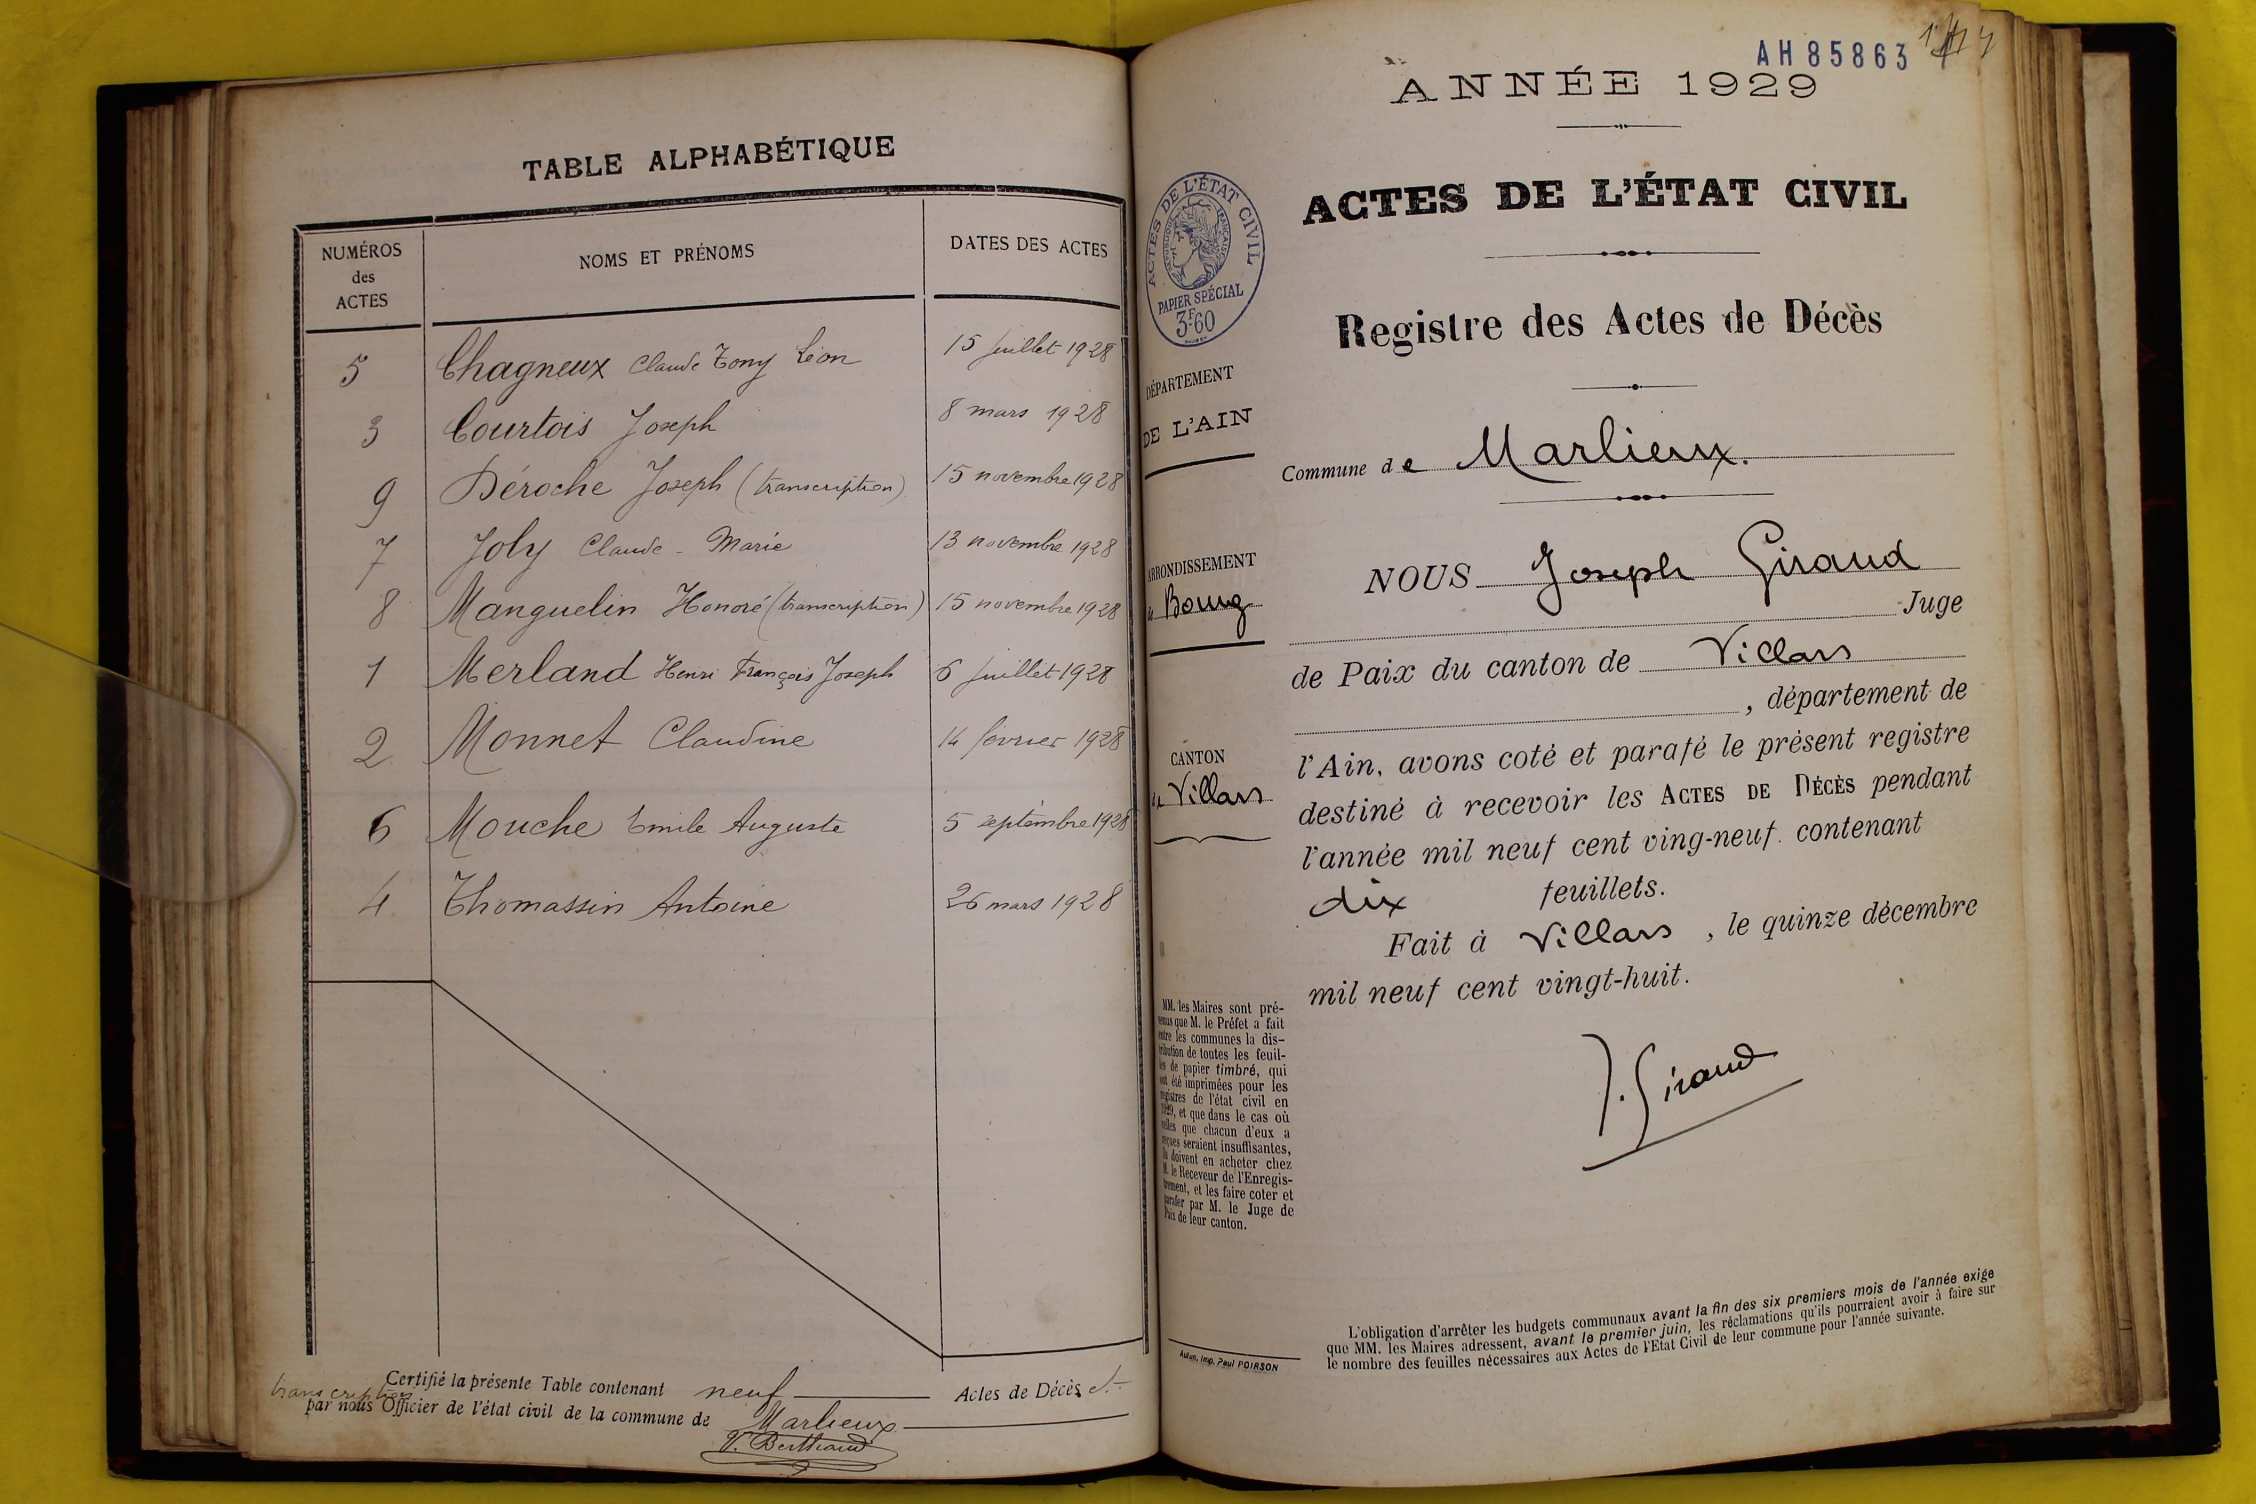 TABLE ALPHABÉTIQUE
NUMÉROS
des
ACTES
NOMS ET PRÉNOMS
DATES DES ACTES
5 Chagneux Claude Tony Léon 15 juillet 1928
3 Courtois Joseph 8 mars 1928
9 Déroche Joseph (transcription) 15 novembre 1928
7 Joly Claude-Marie 13 novembre 1928
8 Manguelin Honoré (transcription) 15 novembre 1928
1 Merland Henri François Joseph 6 juillet 1928
2 Monnet Claudine 14 février 1928
6 Mouche Emile Auguste 5 septembre 1928
4 Thomassin Antoine 26 mars 1928
Certifié la présente Table contenant neuf Actes de Décès et
transcription
par nous Officier de l'état civil de la commune de Marlieux
V. Berthaud
AH85863
ANNÉE 1929
ACTES DE L'ÉTAT CIVIL
Registre des Actes de Décès
ACTES DE L'ÉTAT CIVIL
RÉPUBLIQUE FRANÇAISE
PAPIER SPÉCIAL
3F60
DÉPARTEMENT
DE L'AIN
Commune de Marlieux.
ARRONDISSEMENT
de Bourg
CANTON
de Villars
NOUS Joseph Giraud
Juge
de Paix du canton de Villars
, département de
l'Ain, avons coté et parafé le présent registre
destiné à recevoir les ACTES DE DÉCÈS pendant
l'année mil neuf cent ving-neuf. contenant
dix feuillets.
Fait à Villars, le quinze décembre
mil neuf cent vingt-huit.
J. Giraud
MM. les Maires sont pré-
venus que M. le Préfet a fait
entre les communes la dis-
tribution de toutes les feuil-
les de papier timbré, qui
ont été imprimées pour les
registres de l'état civil en
1929, et que dans le cas où
celles que chacun d'eux a
reçues seraient insuffisantes,
ils doivent en acheter chez
M. le Receveur de l'Enregis-
trement, et les faire coter et
parafer par M. le Juge de
Paix de leur canton.
Autun, Imp. Paul POIRSON
L'obligation d'arrêter les budgets communaux avant la fin des six premiers mois de l'année exige
que MM. les Maires adressent, avant le premier juin, les réclamations qu'ils pourraient avoir à faire sur
le nombre des feuilles nécessaires aux Actes de l'Etat Civil de leur commune pour l'année suivante.